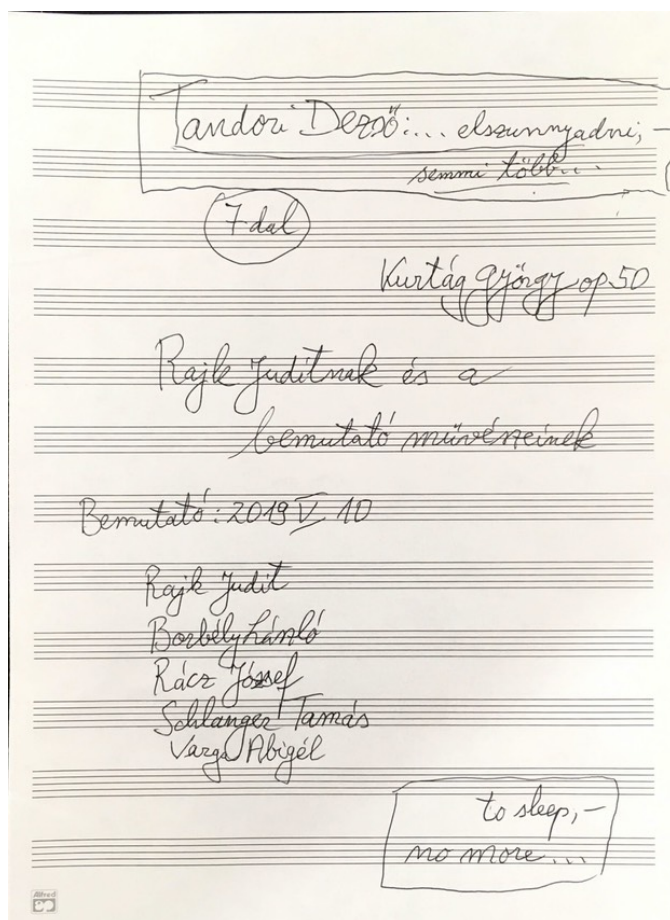 Tandori Dezső:... elszunnyadni, –
semmi több...
7 dal
Kurtág György op. 50
Rajk Juditnak és a
bemutató művészeinek
Bemutató: 2019 V. 10
Rajk Judit
Borbély László
Rácz József
Schlanger Tamás
Varga Abigél
to sleep, –
no more...
Alfred